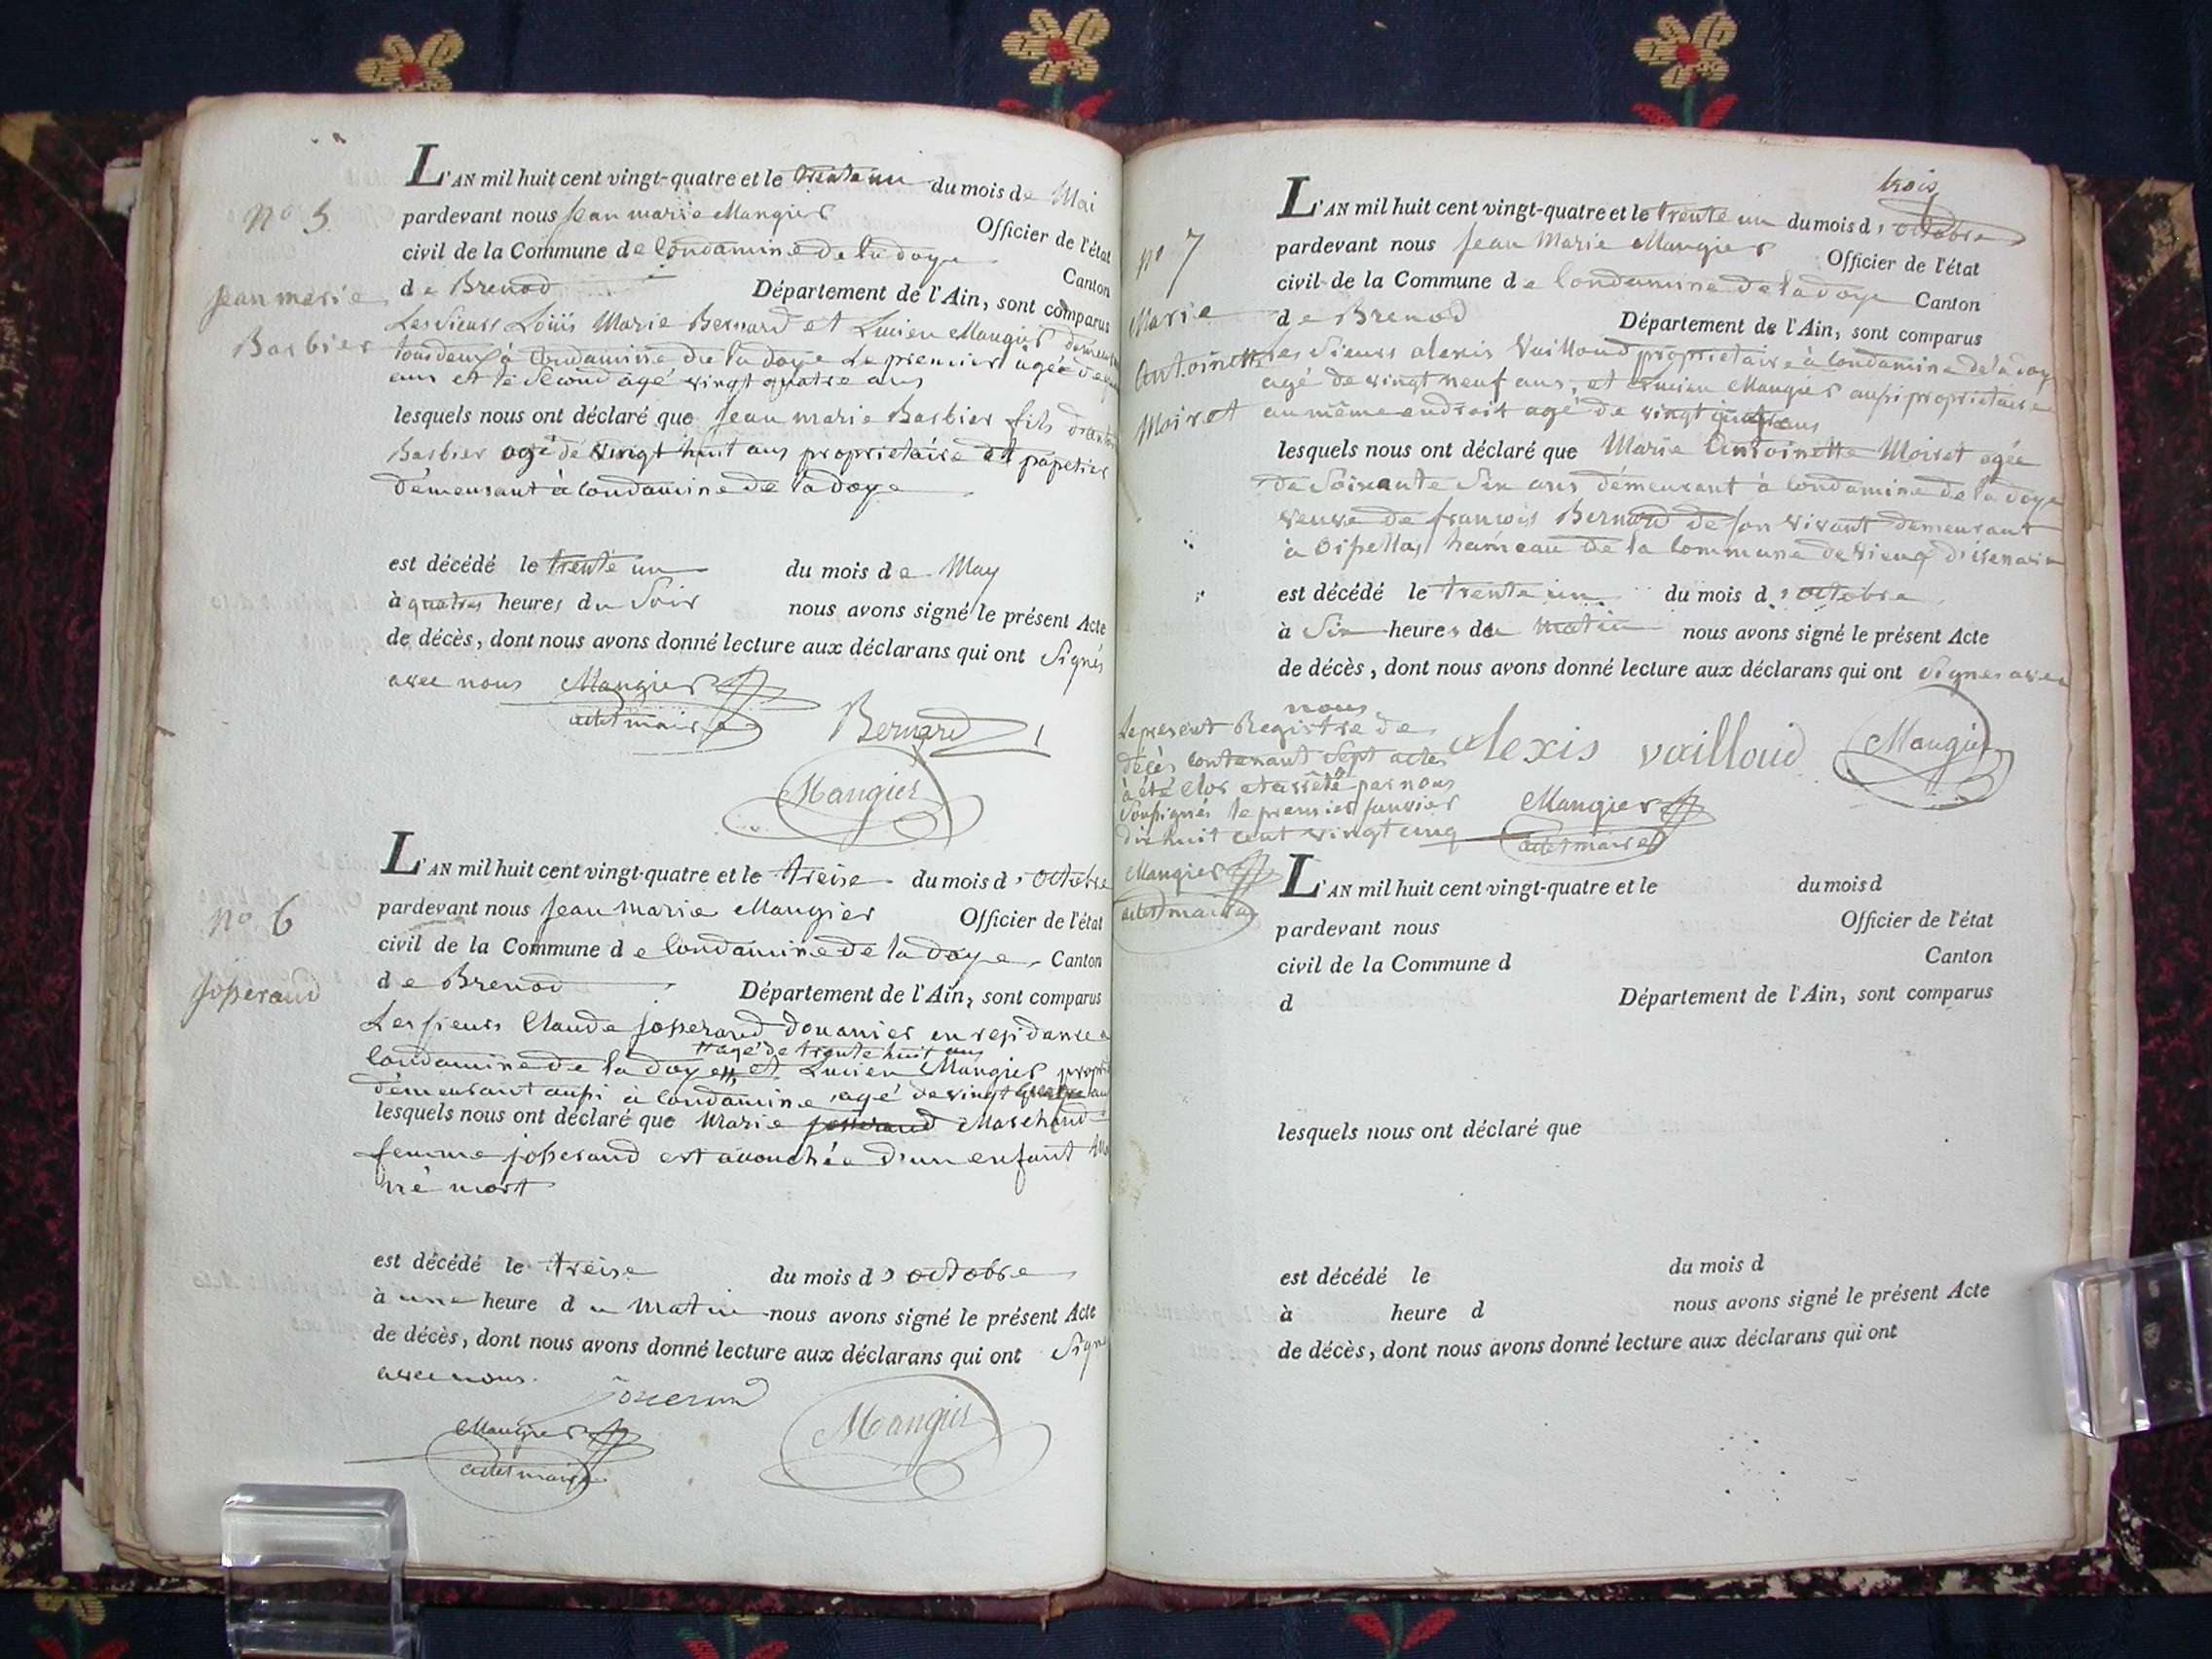 L'AN mil huit cent vingt-quatre et le trente un du mois de Mai
no 5
pardevant nous Jean marie Maugier Officier de l'état
civil de la Commune de Condamine de la doye Canton
Jean marie
Barbier
de Brenod Département de l'Ain, sont comparus
Les Sieurs Loüis Marie Bernard et Lucien Maugier
tous deux à Condamine de la doye Le premier agée de
ans et le Second agé vingt quatre ans
lesquels nous ont déclaré que Jean marie Barbier fils
Barbier agé de vingt huit ans proprietaire et papetier
demeurant à Condamine de la doye
est décédé le trente un du mois de May
à quatres heures du Soir nous avons signé le présent Acte
de décès, dont nous avons donné lecture aux déclarans qui ont Signés
avec nous Maugier
adet maire
Bernard
Maugier
L'AN mil huit cent vingt-quatre et le treise du mois d'octobre
no 6
pardevant nous Jean marie Maugier Officier de l'état
civil de la Commune de Condamine de la doye Canton
Josserand
de Brenod Département de l'Ain, sont comparus
Les sieurs Claude josserand douanier en residance a
agé de trente huit ans
Condamine de la doye et Lucien Maugier
demeurant aussi à Condamine agé de vingt quatre
lesquels nous ont déclaré que Marie josserand Marchand
femme josserand est accouchée d'un enfant
né mort
est décédé le treise du mois d'octobre
à une heure du Matin nous avons signé le présent Acte
de décès, dont nous avons donné lecture aux déclarans qui ont
avec nous.
Josserand
Maugier
adet maire
Maugier
trois
L'AN mil huit cent vingt-quatre et le trente un du mois d'octobre
no 7
pardevant nous Jean Marie Maugier Officier de l'état
civil de la Commune de Condamine de la doye Canton
Marie
Antoinette
Moiret
de Brenod Département de l'Ain, sont comparus
Les Sieurs alexis Vailloud proprietaire à Condamine de la doye
agé de vingt neuf ans, et Lucien Maugier aussi proprietaire
au même endroit agé de vingt quatre ans
lesquels nous ont déclaré que Marie Antoinette Moiret agée
de Soixante Six ans démeurant à Condamine de la doye
veuve de francois Bernard de son vivant demeurant
à hameau de la Commune de vieux
est décédé le trente un du mois d'octobre
à Six heures du matin nous avons signé le présent Acte
de décès, dont nous avons donné lecture aux déclarans qui ont Signés avec
nous
Alexis vailloud
Maugier
Maugier
adet maire
Le present Registre de
décès contenant Sept actes
à été Clos et arrêté par nous
Soussignés le premier Janvier
dix huit cent vingt cinq
Maugier
adet maire
L'AN mil huit cent vingt-quatre et le du mois d
pardevant nous Officier de l'état
civil de la Commune d Canton
d Département de l'Ain, sont comparus
lesquels nous ont déclaré que
est décédé le du mois d
à heure d nous avons signé le présent Acte
de décès, dont nous avons donné lecture aux déclarans qui ont